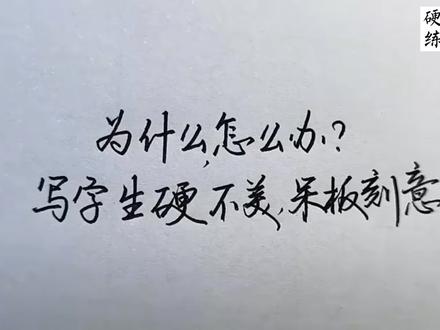 硬
练
为什么,怎么办?
写字生硬不美,呆板刻意